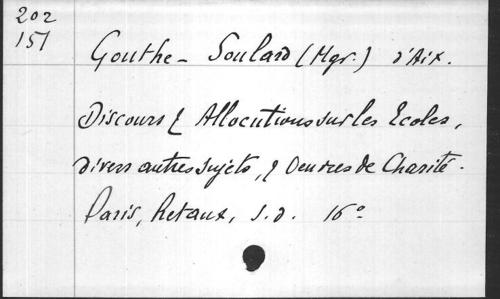 202
151
Gouthe-Soulard (Mgr.) d'Aix.
Discours & Allocutions sur les Ecoles,
divers autres sujets, & Oeuvres de Charité.
Paris, Retaux, s.d. 16º